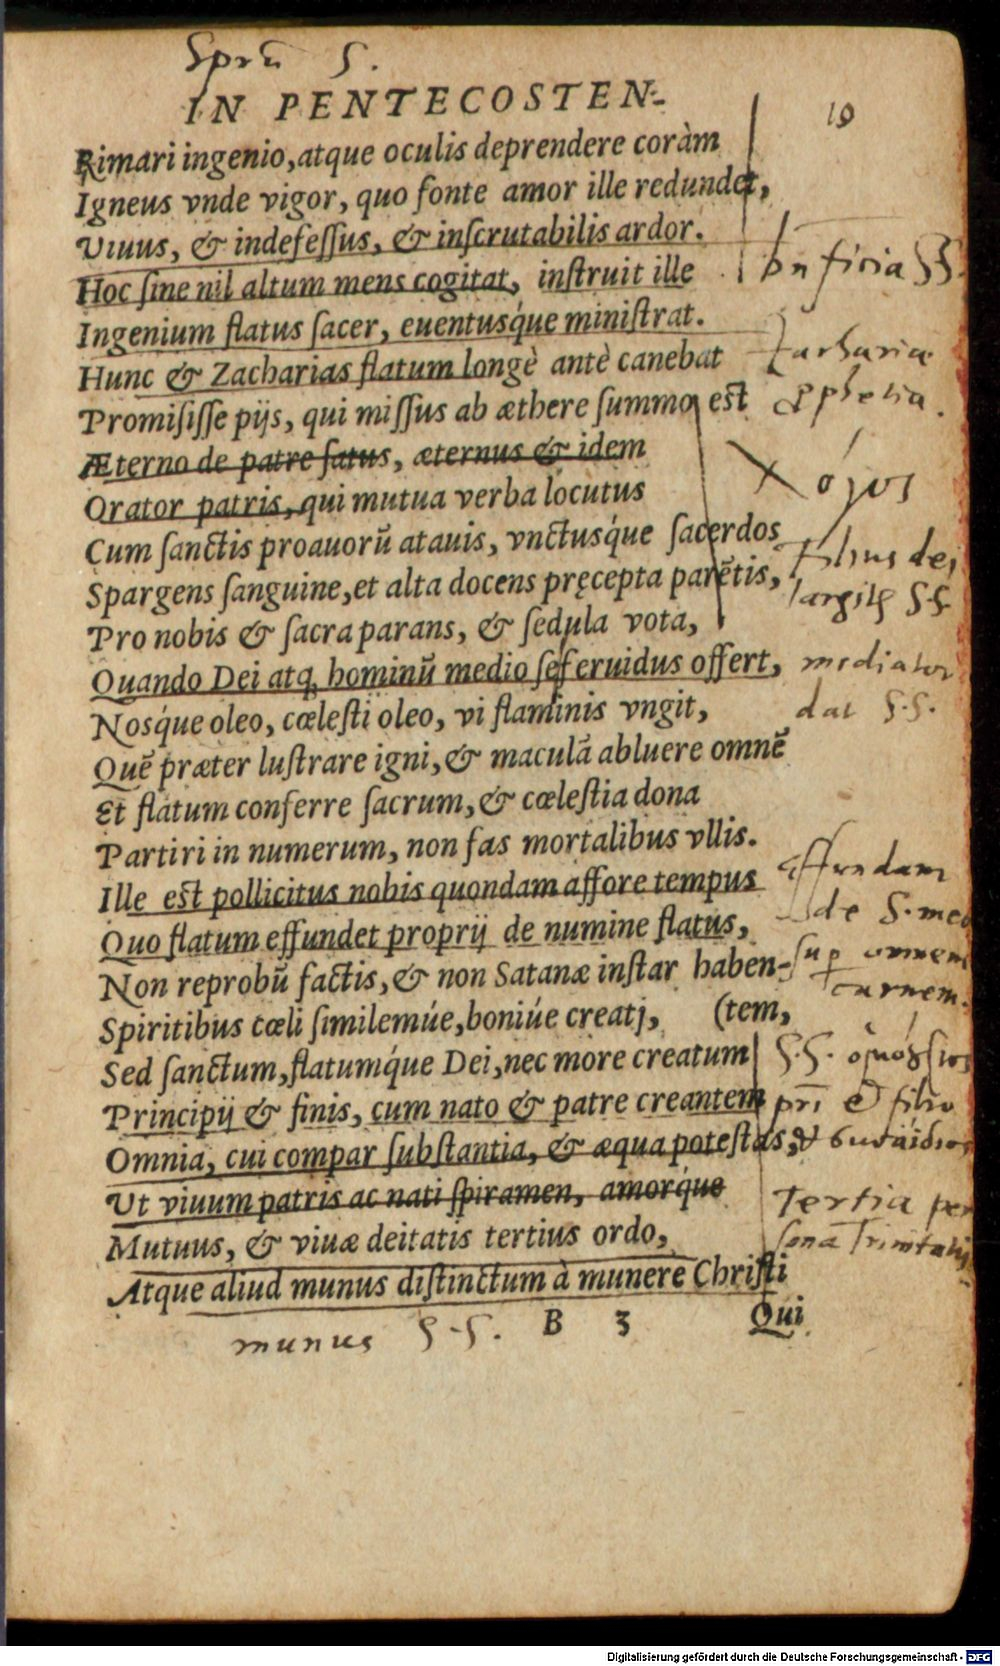 Sprũ S.
IN PENTECOSTEN-
19
Rimari ingenio, atque oculis deprendere coràm
Igneus vnde vigor, quo fonte amor ille redundet,
Viuus, & indefeſſus, & inſcrutabilis ardor.
Hoc ſine nil altum mens cogitat, inſtruit ille
Ingenium flatus ſacer, euentusq́ue miniſtrat.
Hunc & Zacharias flatum longè antè canebat
Promiſiſſe pijs, qui miſſus ab æthere ſummo eſt
Æterno de patre ſatus, æternus & idem
Orator patris, qui mutua verba locutus
Cum ſanctis proauorũ atauis, vnctusq́ue ſacerdos
Spargens ſanguine, et alta docens pręcepta parẽtis,
Pro nobis & ſacra parans, & ſedula vota,
Quando Dei atq, hominũ medio ſe feruidus offert,
Nosq́ue oleo, cœleſti oleo, vi flaminis vngit,
Quẽ præter luſtrare igni, & maculã abluere omnẽ
Et flatum conferre ſacrum, & cœleſtia dona
Partiri in numerum, non fas mortalibus vllis.
Ille eſt pollicitus nobis quondam affore tempus
Quo flatum effundet proprij de numine flatus,
Non reprobũ factis, & non Satanæ inſtar haben-
Spiritibus cœli ſimilemúe, boniúe creati, (tem,
Sed ſanctum, flatumq́ue Dei, nec more creatum
Principij & finis, cum nato & patre creantem
Omnia, cui compar ſubſtantia, & æqua poteſtas,
Ut viuum patris ac nati ſpiramen, amorq́ue
Mutuus, & viuæ deitatis tertius ordo,
Atque aliud munus diſtinctum à munere Chriſti
B 3 Qui
munus S.S.
Zachariæ
λόγος
filius dei
mediator
dat S.S.
Effundam
de S. meo
sup omnem
carnem.
S.S. ὁμοούσιος
pri & filio
Tertia per
sona Trinitatis
Digitalisierung gefördert durch die Deutsche Forschungsgemeinschaft - DFG